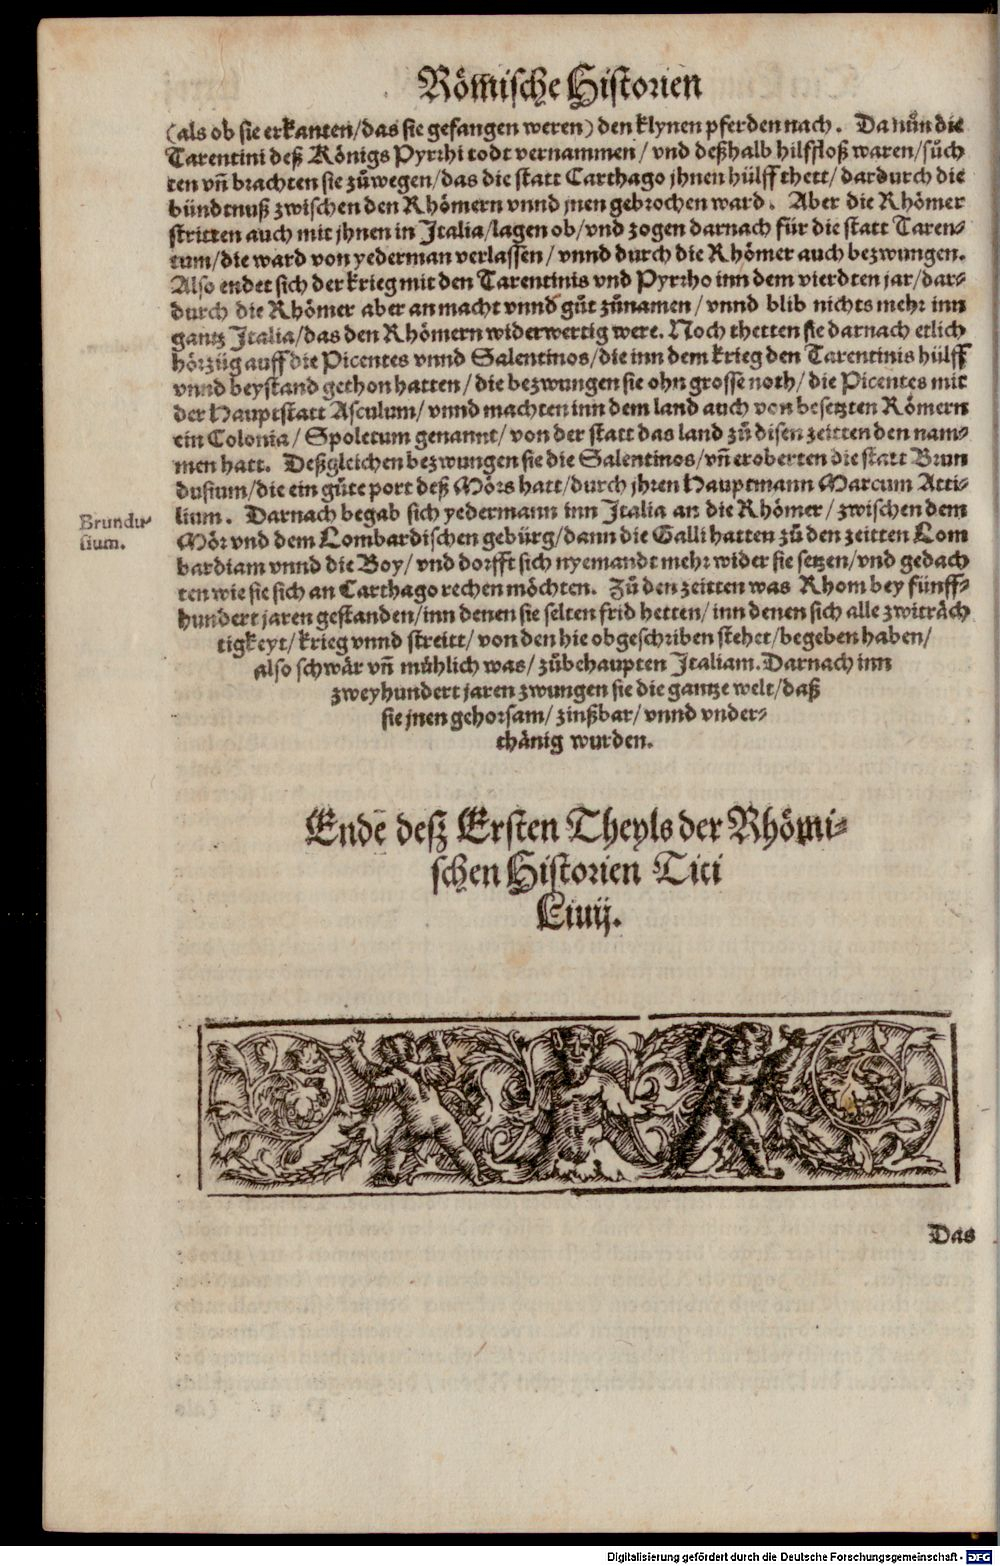 Römische Historien
(als ob sie erkanten/das sie gefangen weren) den klynen pferden nach. Da nůn die
Tarentini deß Königs Pyrrhi todt vernammen / vnd deßhalb hilffloß waren/sůch
ten vñ brachten sie zůwegen/das die statt Carthago jhnen hülff thett/ dardurch die
bündtnuß zwischen den Rhömern vnnd jnen gebrochen ward. Aber die Rhömer
stritten auch mit jhnen in Italia/lagen ob/vnd zogen darnach für die statt Taren-
tum/die ward von yederman verlassen/ vnnd durch die Rhömer auch bezwungen.
Also endet sich der krieg mit den Tarentinis vnd Pyrrho inn dem vierdten jar/dar-
durch die Rhömer aber an macht vnnd gůt zůnamen / vnnd blib nichts mehr inn
gantz Italia/das den Rhömern widerwertig were. Noch thetten sie darnach etlich
hörzüg auff die Picentes vnnd Salentinos/die inn dem krieg den Tarentinis hülff
vnnd beystand gethon hatten/ die bezwungen sie ohn grosse noth/ die Picentes mit
der Hauptstatt Asculum/ vnnd machten inn dem land auch von besetzten Römern
ein Colonia/ Spoletum genannt/ von der statt das land zů disen zeitten den nam-
men hatt. Deßgleichen bezwungen sie die Salentinos/vñ eroberten die statt Brun
dusium/die ein gůte port deß Mörs hatt/durch jhren Hauptmann Marcum Atti-
lium. Darnach begab sich yedermann inn Italia an die Rhömer/ zwischen dem
Brundu-
sium.
Mör vnd dem Lombardischen gebürg/dann die Galli hatten zů den zeitten Lom
bardiam vnnd die Boy/ vnd dorfft sich nyemandt mehr wider sie setzen/vnd gedach
ten wie sie sich an Carthago rechen möchten. Zů den zeitten was Rhom bey fünff-
hundert jaren gestanden/inn denen sie selten frid hetten/ inn denen sich alle zwiträch
tigkeyt/ krieg vnnd streitt/ von den hie obgeschriben stehet/begeben haben/
also schwär vñ mühlich was/ zůbehaupten Italiam. Darnach inn
zweyhundert jaren zwungen sie die gantze welt/daß
sie jnen gehorsam/ zinßbar/ vnnd vnder-
thänig wurden.
Ende deß Ersten Theyls der Rhömi-
schen Historien Titi
Liuij.
Das
Digitalisierung gefördert durch die Deutsche Forschungsgemeinschaft - DFG